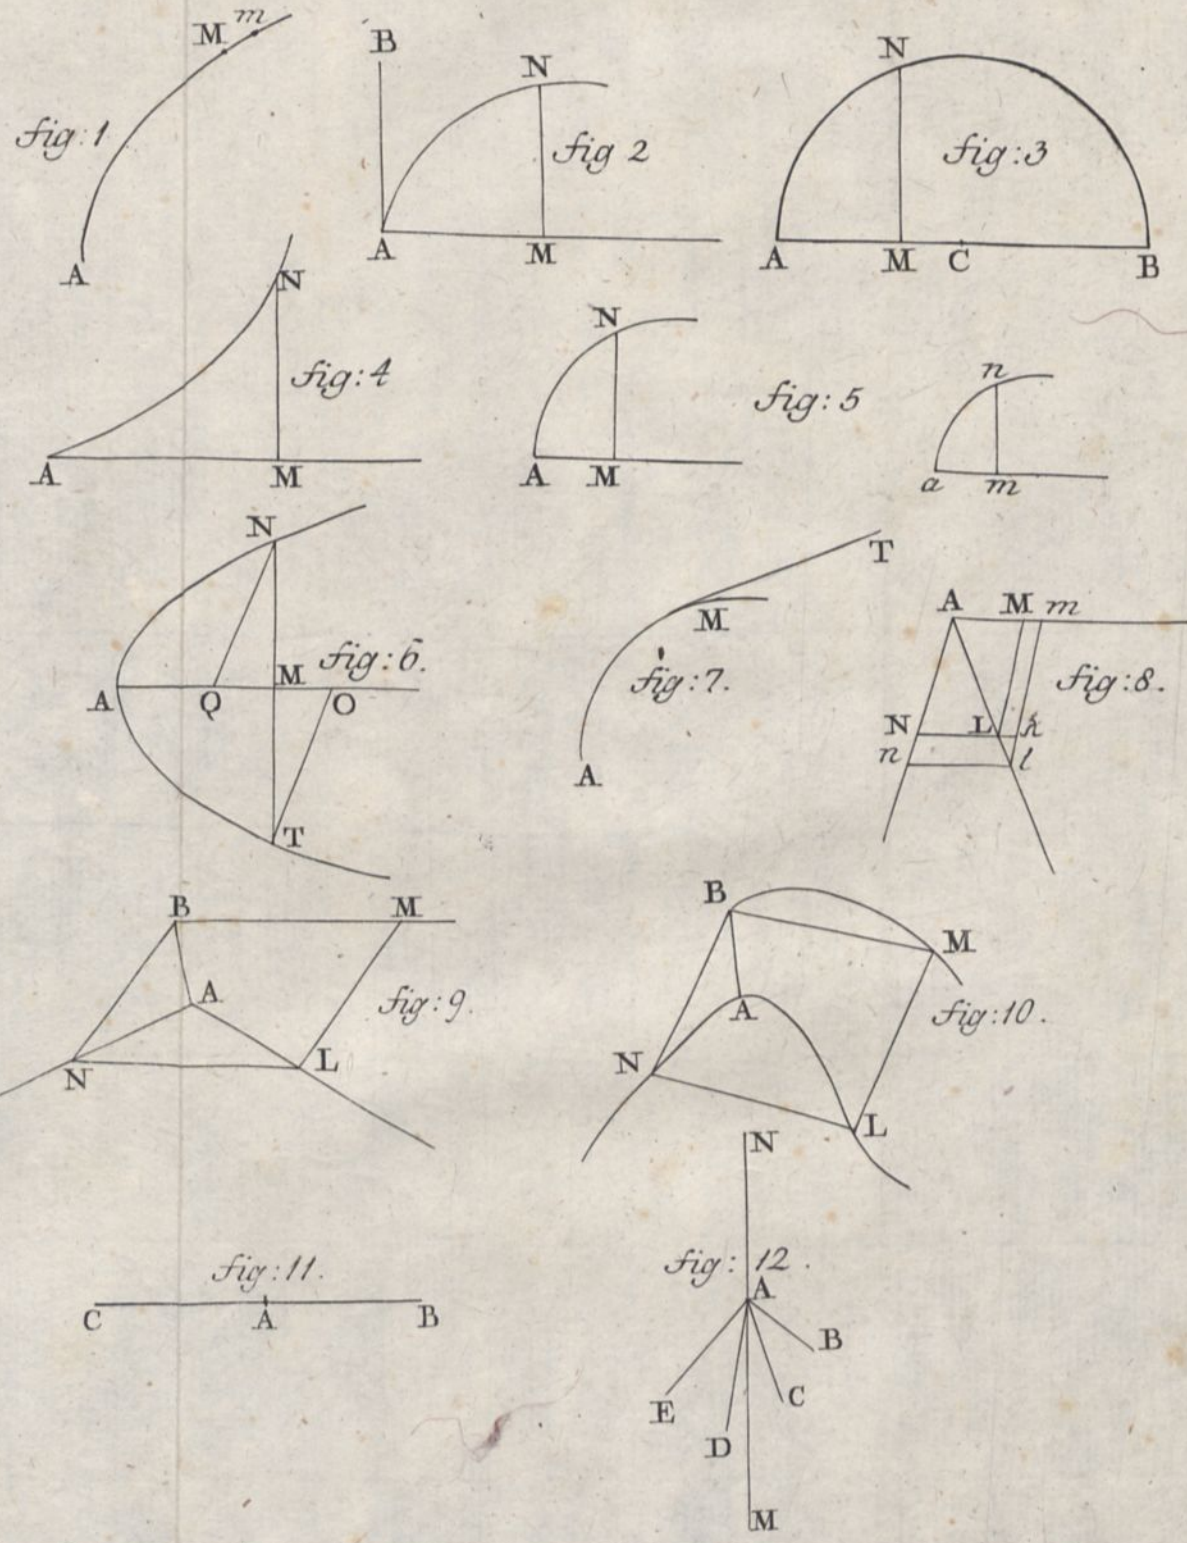 M m
fig:1
A
B
N
fig 2
A
M
N
fig:3
A
M
C
B
N
fig:4
A
M
N
A
M
fig:5
n
a
m
N
M
fig:6.
A
Q
O
T
T
M
fig:7.
A
A
M
m
fig:8.
N
L
k
n
l
B
M
A
fig:9.
N
L
B
M
A
fig:10.
N
L
fig:11.
C
A
B
N
fig: 12.
A
B
C
E
D
M